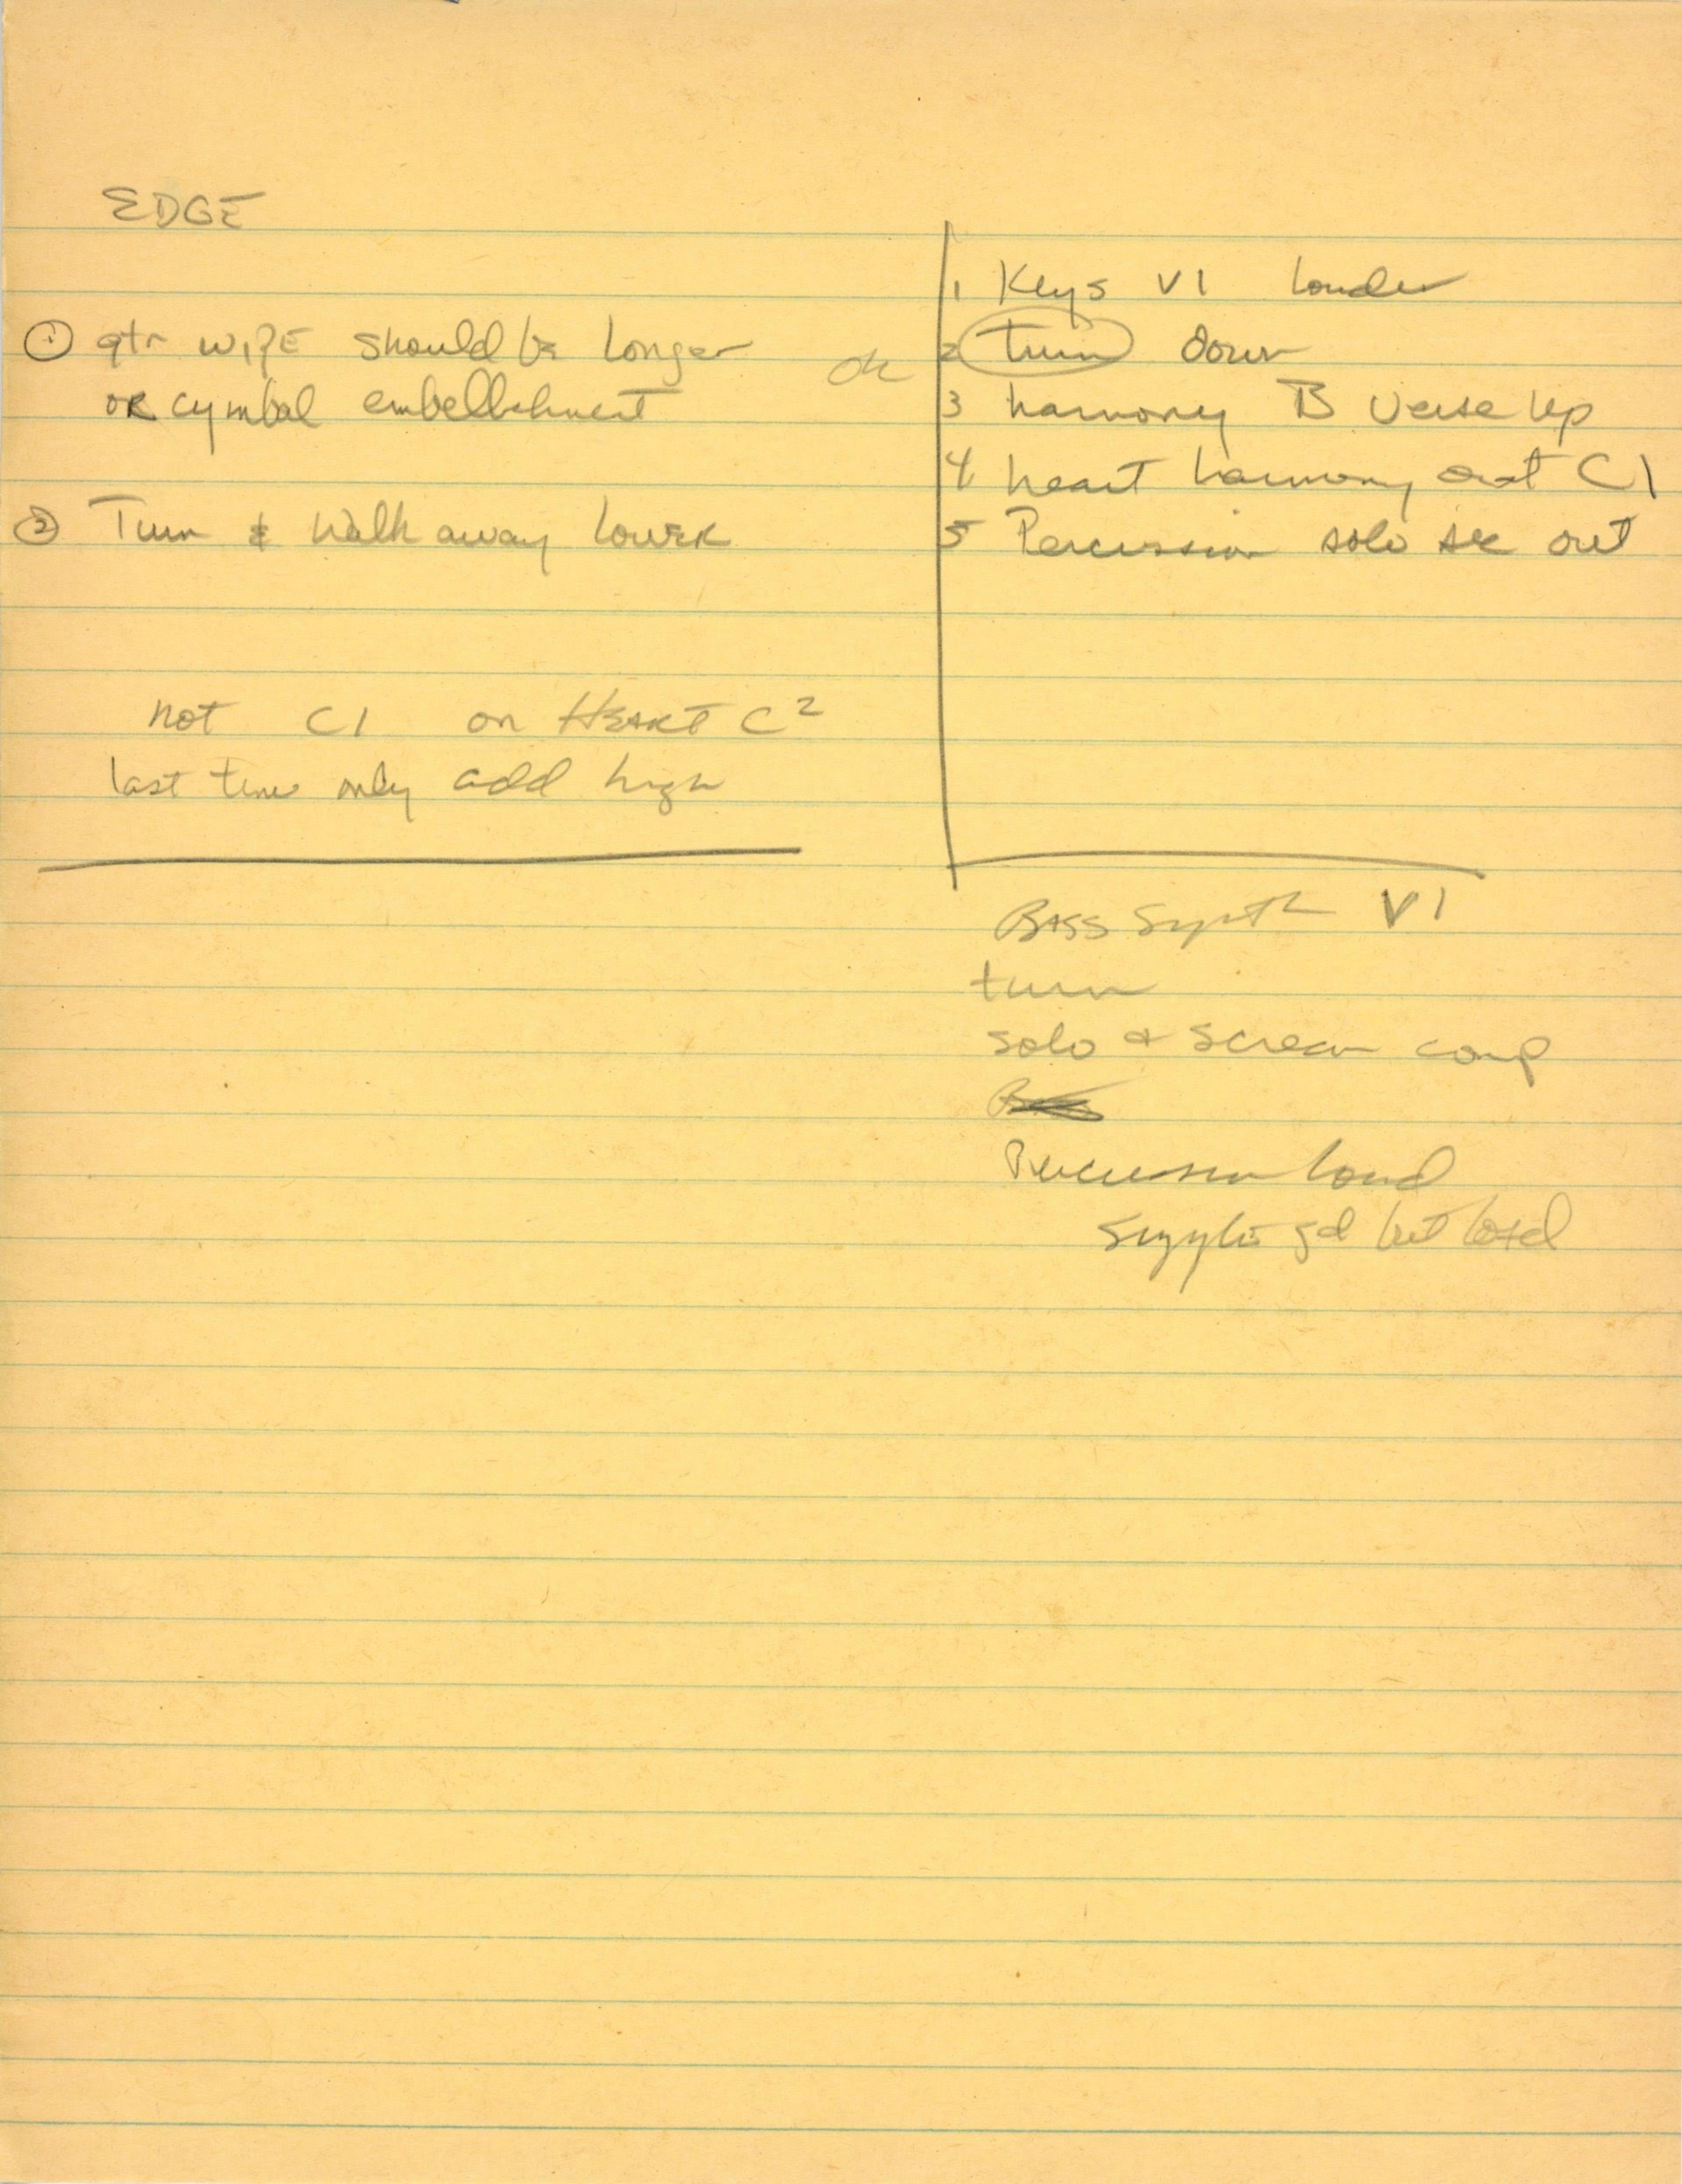 EDGE
① gtr wipe should be longer
OR cymbal embellishment
② Turn & Walk away LOWER
not C1 on HEART C2
last time only add high
ok
1 Keys V1 louder
2 turn down
3 harmony B verse up
4 heart harmony out C1
5 Percussion solo out
Bass Synth V1
turn
solo & scream comp
Percussion loud
gd but loud